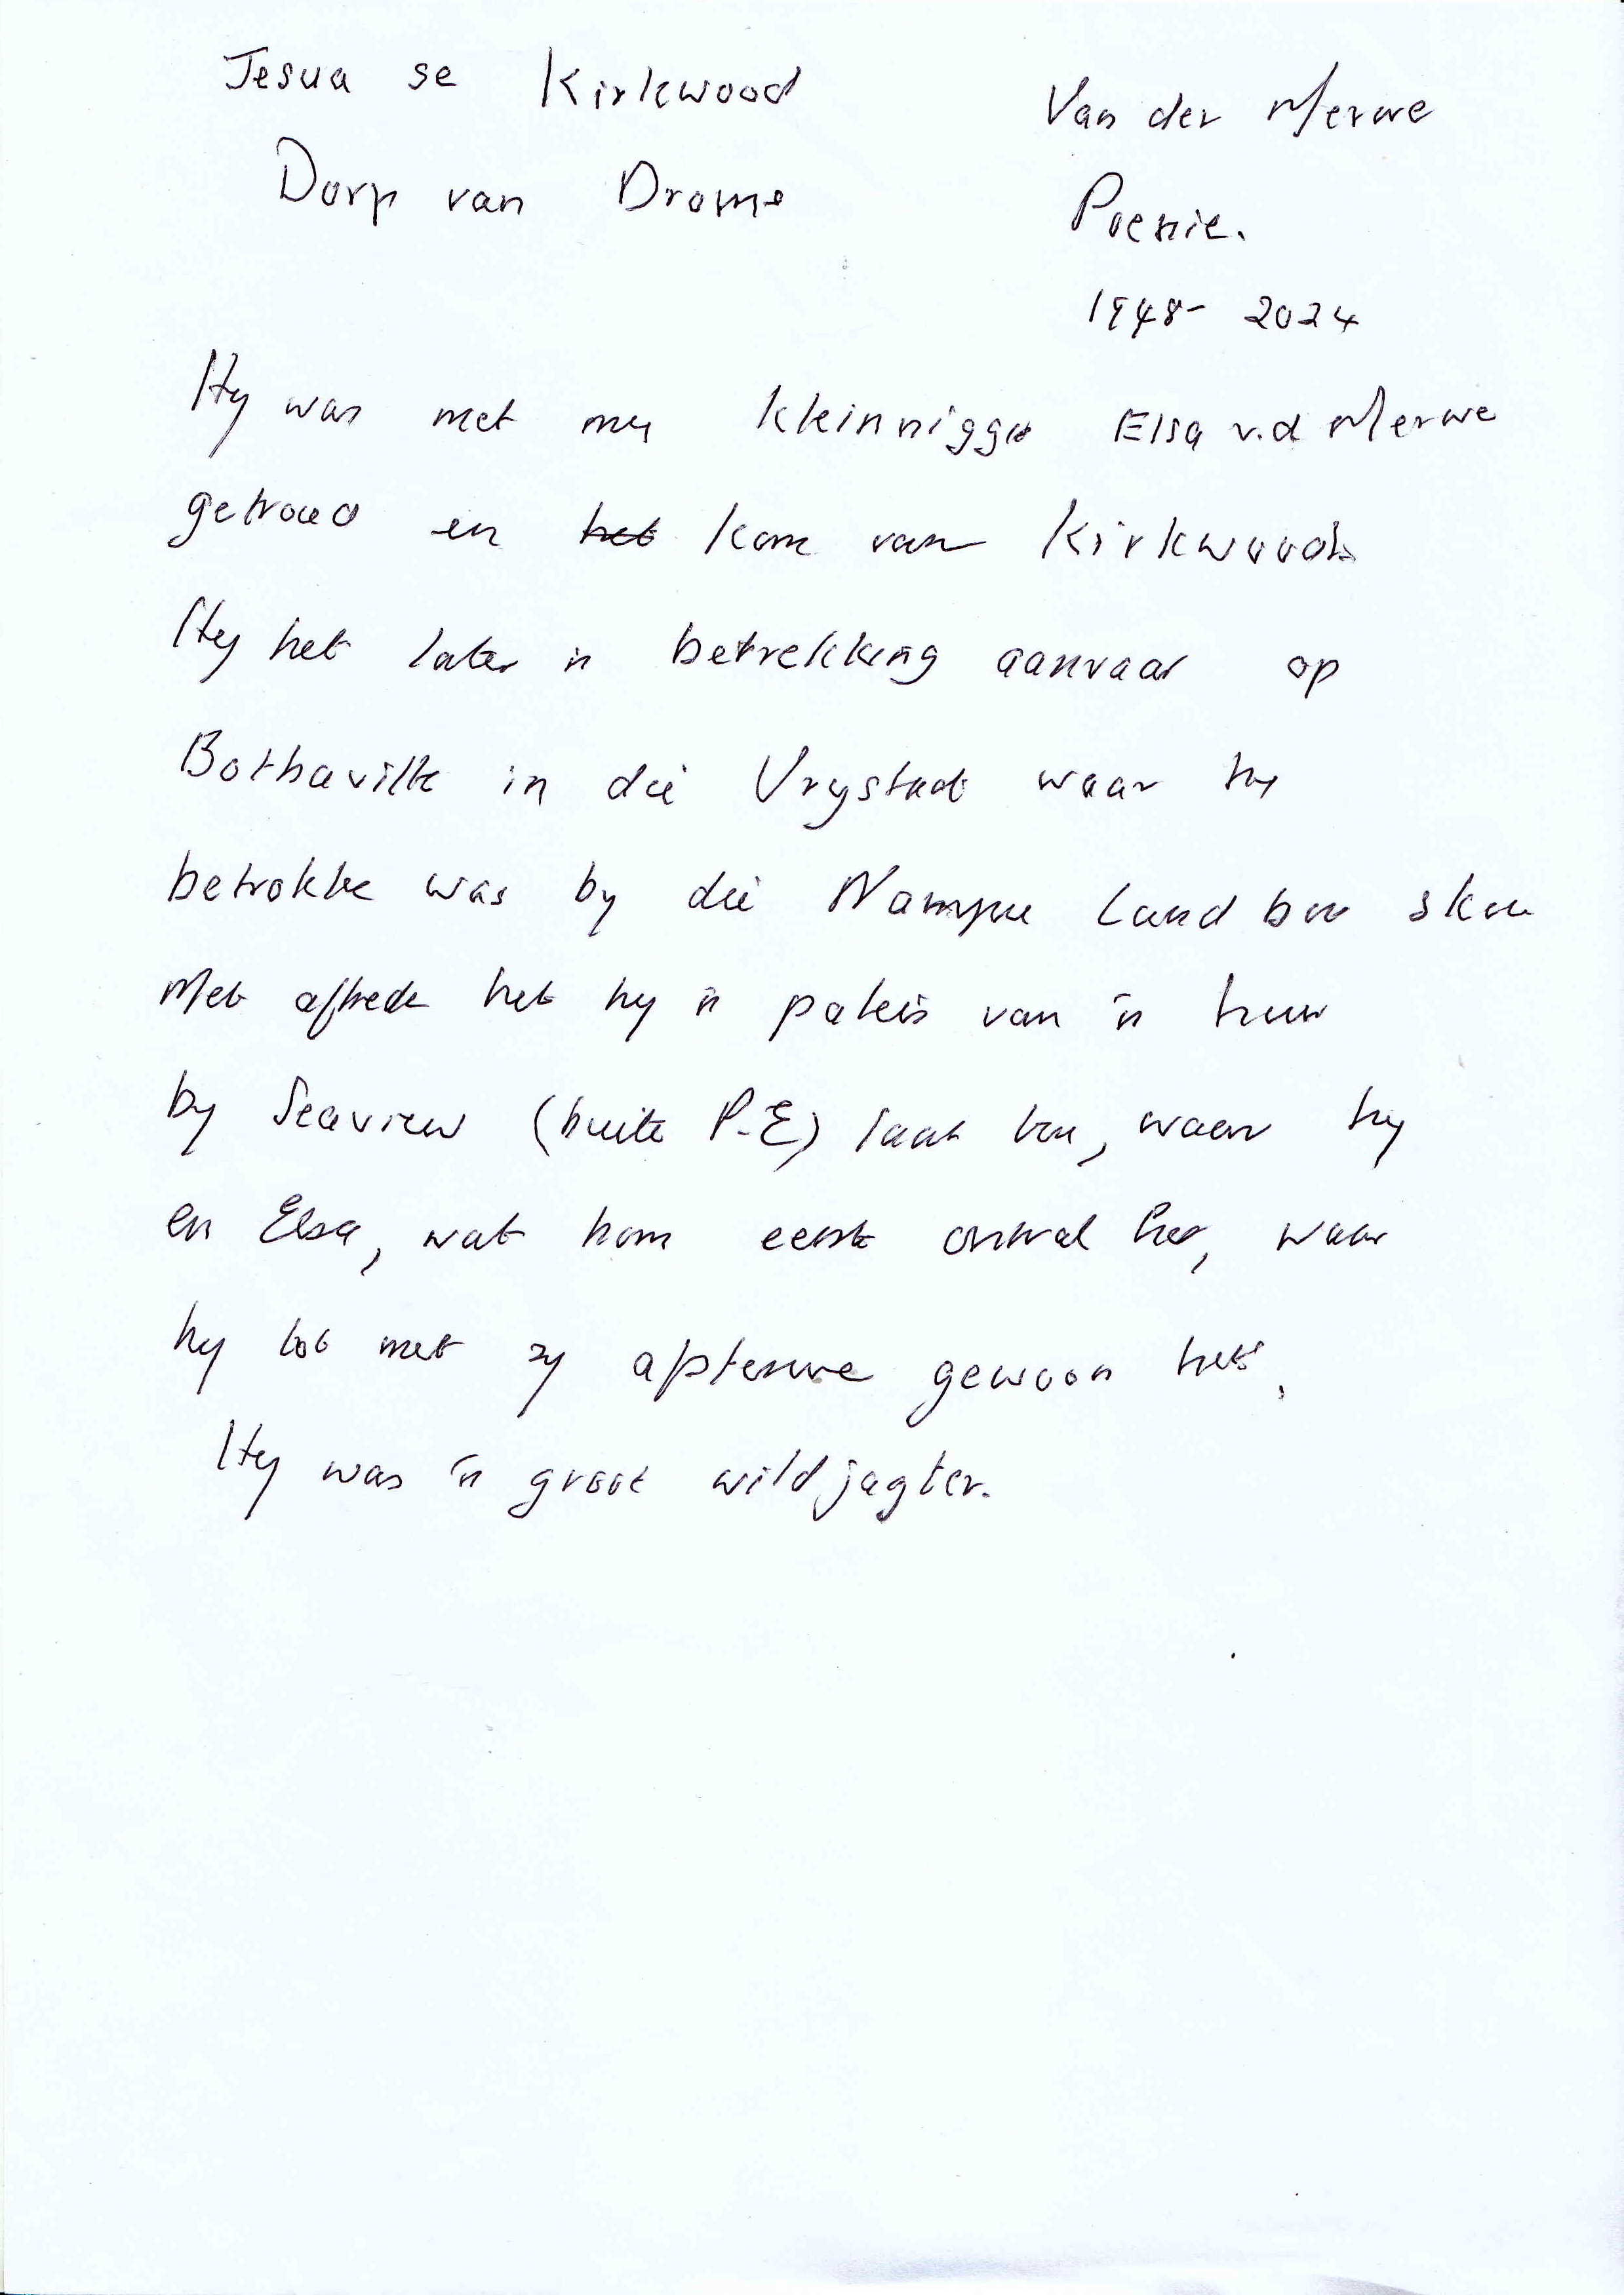 Jesua se Kirkwood
Dorp van Drome
Van der Merwe
Poenie.
1948- 2024
Hy was met my kleinniggie Elsa v.d Merwe
getroud en het kom van Kirkwood.
Hy het later 'n betrekking aanvaar op
Bothaville in die Vrystaat waar hy
betrokke was by die Nampu Landbou skou
Met aftrede het hy 'n paleis van 'n huis
by Seaview (buite P.E) laat bou, waar hy
en Elsa, wat hom eerste ontval het, waar
hy tot met sy afsterwe gewoon het.
Hy was 'n groot wildjagter.